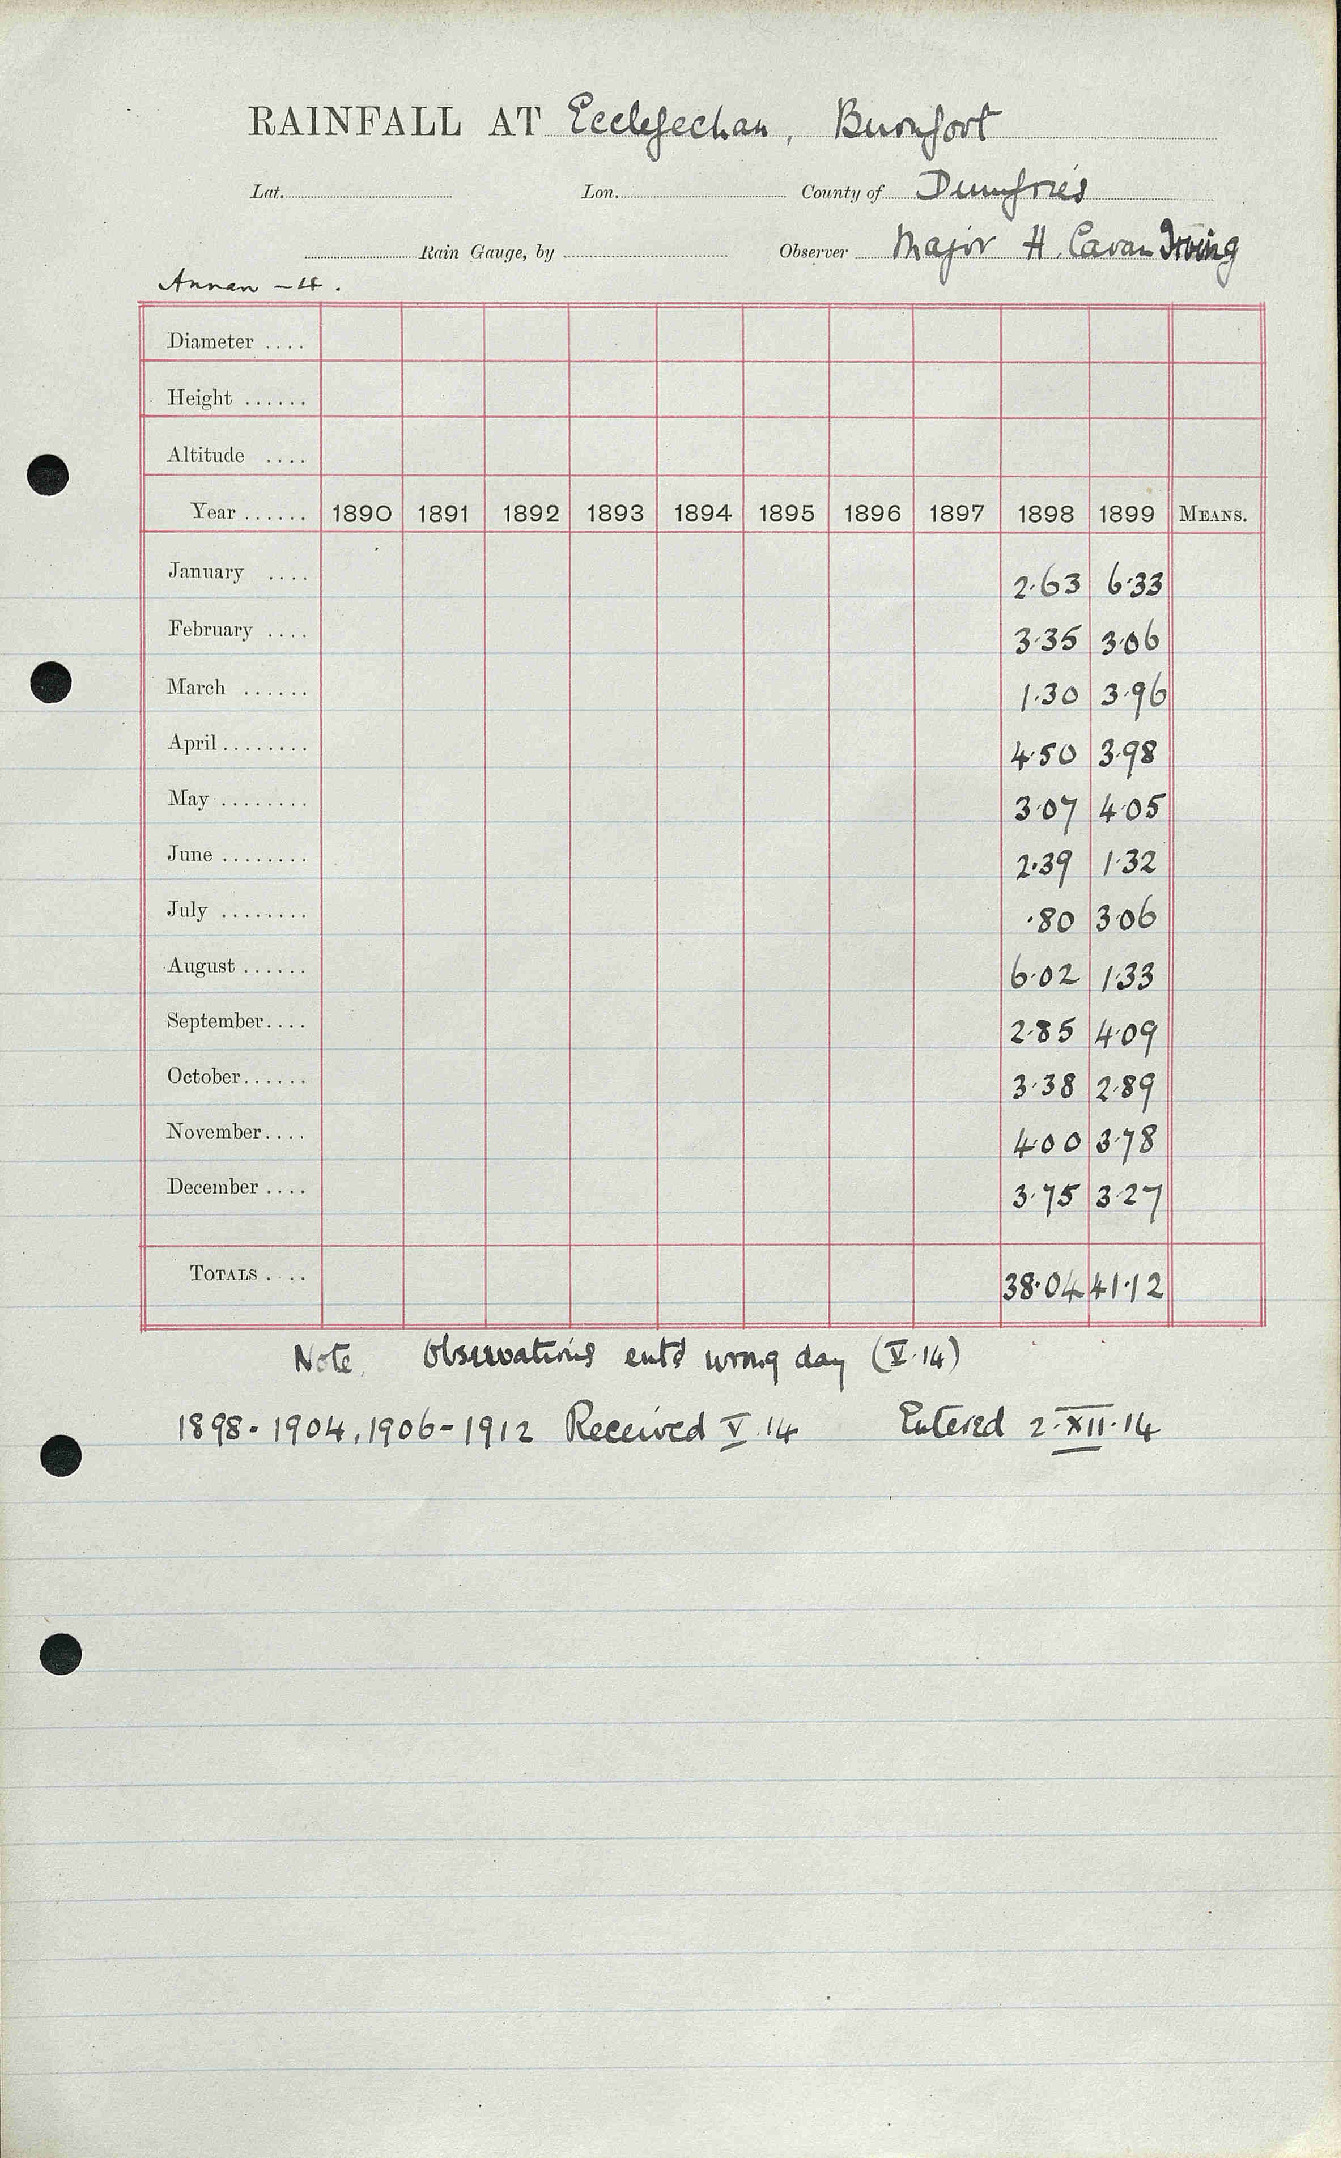 RAINFALL AT Ecclefechan, Burnfoot
Lat. Lon. County of Dumfries
Rain Gauge, by Observer Major H. Cavan Irving
Annan - 4.
Diameter ....
Height ......
Altitude ....
Year ...... 1890 1891 1892 1893 1894 1895 1896 1897 1898 1899 MEANS.
January .... 2.63 6.33
February .... 3.35 3.06
March ...... 1.30 3.96
April ........ 4.50 3.98
May ........ 3.07 4.05
June ........ 2.39 1.32
July ........ .80 3.06
August ...... 6.02 1.33
September.... 2.85 4.09
October...... 3.38 2.89
November.... 4.00 3.78
December .... 3.75 3.27
TOTALS .... 38.04 41.12
Note. Observations entd wrong day (V.14)
1898-1904, 1906-1912 Received V.14 Entered 2.XII.14